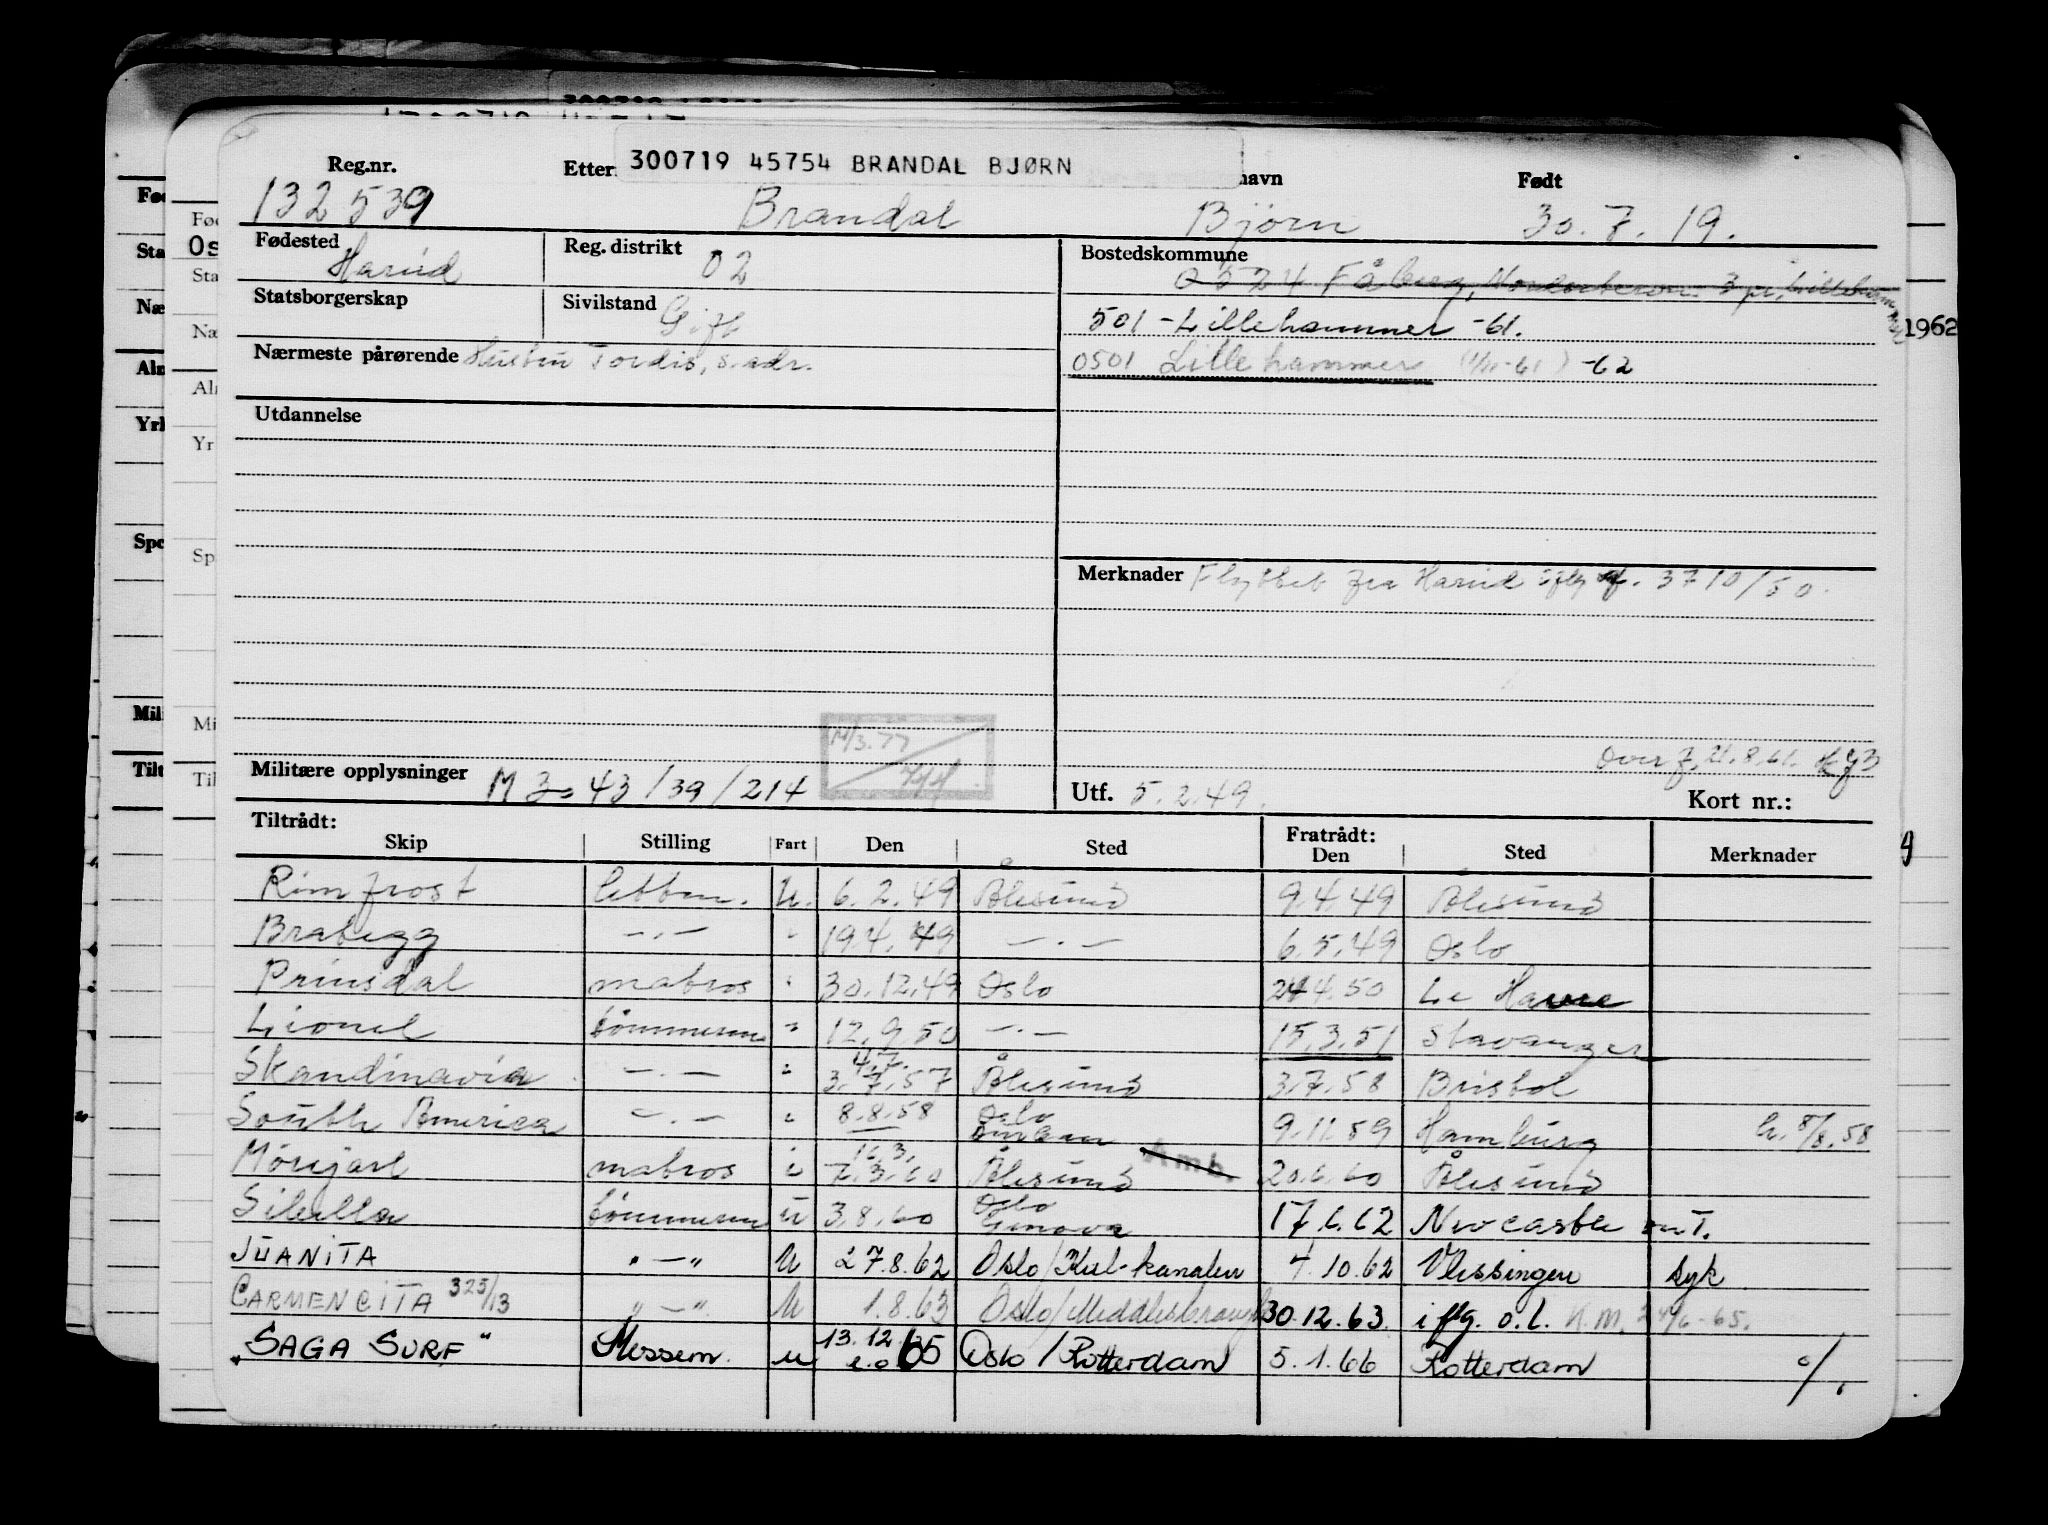 300719 45754 BRANDAL BJØRN
Reg.nr. Etter navn Født
132539 Brandal Bjørn 30.7.19.
Fødested Harèid Reg. distrikt 02 Bostedskommune
Statsborgerskap Sivilstand Gift
501 - Lillehammer -61.
1962
Nærmeste pårørende Hustru Tordis, s. adr.
0501 Lillehammer -62
Utdannelse
Merknader Flyttet fra Hareid iflg 3710/50.
Militære opplysninger M 43/39/214
Utf. 5.2.49.
Kort nr.:
Tiltrådt: Fratrådt:
Skip Stilling Fart Den Sted Den Sted Merknader
Rimfrost lettm. u. 6.2.49 Ålesund 9.4.49 Ålesund
Brategg -.- 19.4.49 -.- 6.5.49 Oslo
Prinsdal matros 30.12.49 Oslo 4.50 Le Havre
Lionel tømmerm 12.9.50 -.- 15.3.51 Stavanger
Skandinavia -.- 4.7. 3.7.57 Ålesund 3.7.58 Bristol
South America -.- 8.8.58 Oslo 9.11.59 Hamburg 8/8.58
Mørejarl matros i 16.3. 7.3.60 Ålesund Amb. 20.6.60 Ålesund
Sibella tømmerm u 3.8.60 Oslo Genova 17.6.62 Newcastle on T.
JUANITA "-" u 27.8.62 Oslo/Kiel-kanalen 4.10.62 Vlissingen syk
CARMENCITA 325/13 "-" u 1.8.63 Oslo/Middlesbrough 30.12.63. iflg. o.l.
"SAGA SURF" Messem. u 13.12.65 Oslo/Rotterdam 5.1.66 Rotterdam